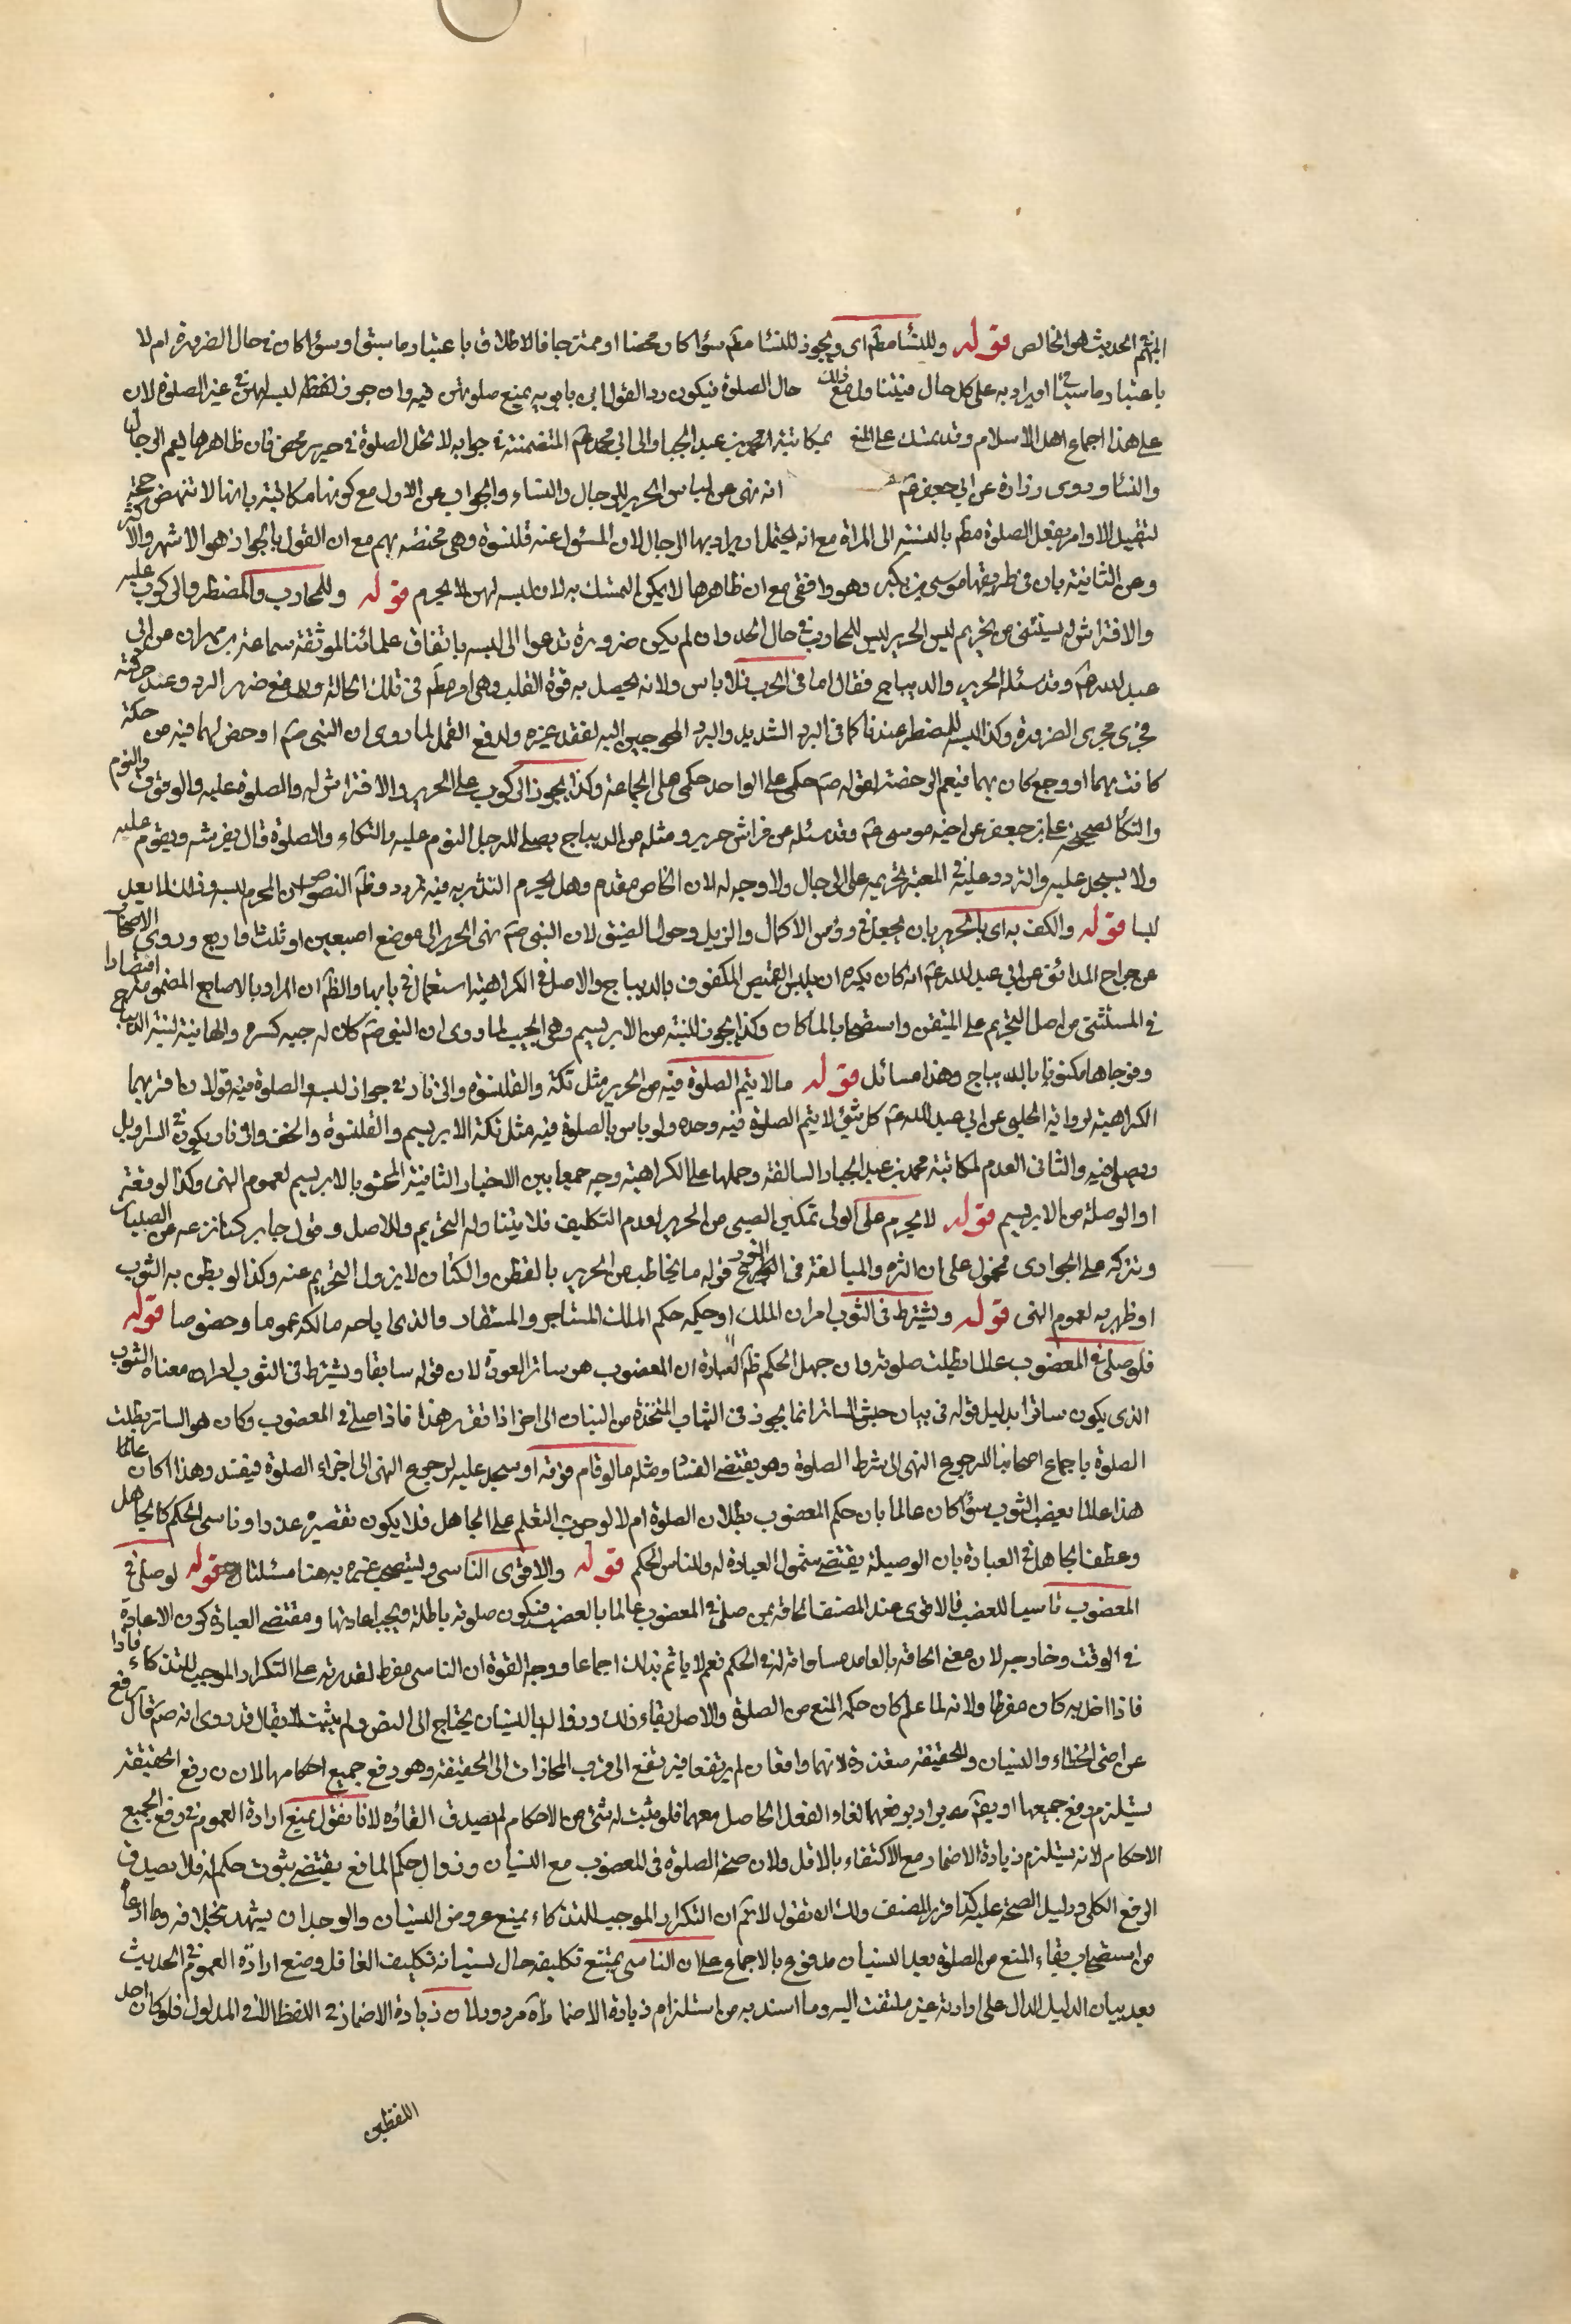 الحديث هو الخالص قوله وللنساء مطم اى ويجوز للنساء مطم سواء كان محضا او ممتزجا فالاطلاق باعتبار ما سبق او سواء كان فى حال الضرورة ام لا
باعتبار ما سياتى او يراد به على كل حال فيتناول ذلك حال الصلوة فيكون ردا لقول ابن بابويه بمنع صلوتهن فيه وان جوز لفظه لبسه لهن فى غير الصلوة لان
على هذا اجماع اهل الاسلام وقد يتمسك على المنع بمكاتبة محمد بن عبد الجبار الى ابى محمد ع المتضمنة فى جوابه لا تحل الصلوة فى حرير محض فان ظاهرها يعم الرجال
والنساء وروى زرارة عن ابى جعفر ع انه نهى عن لباس الحرير للرجال والنساء والجواب عن الاول مع كونها مكاتبة بانها لا تنهض حجة
لتقييد الاوامر بفعل الصلوة مطم بالنسبة الى المراة مع انه يحتمل ان يراد بها الرجال لان المسؤل عنه قلنسوة وهى مختصة بهم مع ان القول بالجواز هو الاشهر والاكثر
وعن الثانية بان فى طريقها موسى بن بكير وهو واقفى مع ان ظاهرها لا يمكن التمسك به لان لبسه لهن لا يحرم قوله وللمحارب والمضطر والركوب عليه
والافتراش له يستثنى من تحريم لبس الحرير لبس للمحارب فى حال الحرب وان لم يكن ضرورة تدعوا الى لبسه باتفاق علمائنا لموثقة سماعة بن مهران عن ابى
عبد الله ع وقد سئله الحرير والديباج فقال اما فى الحرب فلا باس ولانه يحصل به قوة القلب وهى امر مطم فى تلك الحالة ولدفع ضرر الزرد وعند حركته
فجرى مجرى الضرورة وكذا لبسه للمضطر عندنا كما فى البرد الشديد والبرد المحوجين اليه لفقد غيره ولدفع القمل لما روى ان النبى ص ارخص لهما فيه من حكة
كانت بهما او وجع كان بهما فيعم الرخصة لقوله ص حكمى على الواحد حكمى على الجماعة وكذا يجوز الركوب على الحرير والافتراش له والصلوة عليه والوقوف والنوم
والتكأ لصحيحة على بن جعفر عن اخيه موسى ع وقد سئله عن فراش حرير ومثله من الديباج يصلح للرجل النوم عليه والتكاء والصلوة قال يفرشه ويقوم عليه
ولا يسجد عليه والتردد عليه فى المعتبر تحريمه على الرجال ولا وجه له لان الخاص مقدم وهل يحرم التدثر به فيه تردد وظم النصوص ان المحرم لبسه وفى لما يعد
لبسا قوله والكف به اى بالحرير بان يجعل فى رؤس الاكمال والزيل وحول الضيق لان النبى ص نهى الحرير الا موضع اصبعين او ثلث او اربع وروى الاصحاب
عن جراح المدائنى عن ابى عبد الله ع انه كان يكره ان يلبس القميص المكفوف بالديباج والاصل فى الكراهية استعمالها فى بابها والظم ان المراد بالاصابع المضمومة اقتصارا
فى المستثنى من اصل التحريم على المتيقن واستصحابا لما كان وكذا يجوز اللبنة من الابريسم وهى الجيب لما روى ان النبى ص كان له جبه كسروانية لبنة الديباج
وفرجاها مكفوفان بالديباج وهذا مسائل قوله ما لا يتم الصلوة فيه من الحرير مثل تكة والقلنسوة والزنار فى جواز لبسه والصلوة فيه قولان اقربهما
الكراهية لرواية الحلبى عن ابى عبد الله ع كل شئ لا يتم الصلوة فيه وحده ولا باس بالصلوة فيه مثل تكة الابريسم والقلنسوة والخف والزنار يكون فى السراويل
ويصلى فيه والثانى العدم لمكاتبة محمد بن عبد الجبار السالفة وحملها على الكراهية وجه جمعا بين الاخبار الثانية المحشو بالابريسم لعموم النهى وكذا لو رقعة
او الوصلة من الابريسم قوله لا يحرم على الولى تمكين الصبى من الحرير لعدم التكليف فلا يتناوله التحريم وللاصل وقول جابر كنا ننزعه عن الصبيان
ونتركه على الجوارى محمول على ان التنزه والمبالغة فى التورع قوله ما يخاطب من الحرير بالقطن والكتان لا يزول التحريم عنه وكذا لو بطن به الثوب
او ظهر به لعموم النهى قوله ويشترط فى الثوب امران الملك او حكمه حكم الملك المستاجر والمستعار والذى اباحه مالكه عموما وخصوصا قوله
فلو صلى فى المغصوب عالما بطلت صلوته وان جهل الحكم ظم العبارة ان المغصوب هو ساتر العورة لان قوله سابقا ويشترط فى الثوب امران معناه الثوب
الذى يكون ساترا بدليل قوله فى بيان جنس الساتر انما يجوز فى الثياب المتخذة من النبات الى اخر اذا تقرر هذا فاذا صلى فى المغصوب وكان هو الساتر بطلت
الصلوة باجماع اصحابنا لرجوع النهى الى شرط الصلوة وهو يقتضى الفساد ومثله ما لو قام فوقه او سجد عليه لرجوع النهى الى اجزاء الصلوة فيفسد وهذا اكان عالما
هذا عالما بغصب الثوب سواء كان عالما بان حكم المغصوب بطلان الصلوة ام لا لوجوب التعلم على الجاهل فلا يكون تقصيره عذرا وناسى الحكم كالجاهل
وعطف الجاهل فى العبارة بان الوصيلة يقتضى شمول العبادة له وللناسى الحكم قوله والاقوى الناسى وليتصحب غيره به هنا مسئلتان قوله لو صلى فى
المغصوب ناسيا للغصب فالاقوى عند المصنف الحاقه بمن صلى فى المغصوب عالما بالغصب فتكون صلوته باطلة ويجب اعادتها ومقتضى العبارة كون الاعادة
فى الوقت وخارجه لان معنى الحاقه بالعامد مساواته له فى الحكم نعم لا ياثم بذلك اجماعا ووجه القوة ان الناسى مفرط لقدرته على التكرار الموجب للتذكار فاذا
فاذا اخل به كان مفرطا ولانه لما علم كان حكمه المنع من الصلوة والاصل بقاء ذلك وزواله بالنسيان يحتاج الى النص ولم يثبت لا يقال قد روى انه ص قال رفع
عن امتى الخطاء والنسيان والحقيقة متعذرة لانهما واقعان لم يرتفعا فيرتفع الى اقرب المجازات الى الحقيقة وهو رفع جميع احكامها لان رفع الحقيقة
يستلزم رفع جميعها او يقم يراد برفعهما الغاء الفعل الحاصل معهما فلو ثبت له شئ من الاحكام لم يصدق الغاؤه لانا نقول يمنع ارادة العموم فى رفع الجميع
الاحكام لانه يستلزم زيادة الاضمار مع الاكتفاء بالاقل ولان صحة الصلوة فى المغصوب مع النسيان وزوال حكم المانع يقتضى ثبوت حكم له فلا يصدق
الرفع الكلى ودليل الصحة عليه كذا قرر المصنف ولك ان تقول لا ثم ان التكرار الموجب للتذكاء يمنع عروض النسيان والوجدان يشهد بخلافه وما ادعاه
من استصحاب بقاء المنع من الصلوة بعد النسيان مدفوع بالاجماع على ان الناسى يمتنع تكليفه حال نسيانه تكليف الغافل ومنع ارادة العموم فى الحديث
بعد بيان الدليل الدال على ارادته غير ملتفت اليه وما اسند به من استلزام زيادة الاضمار مردود لان زيادة الاضمار فى اللفظ لا فى المدلول فلو كان احد
اللفظين